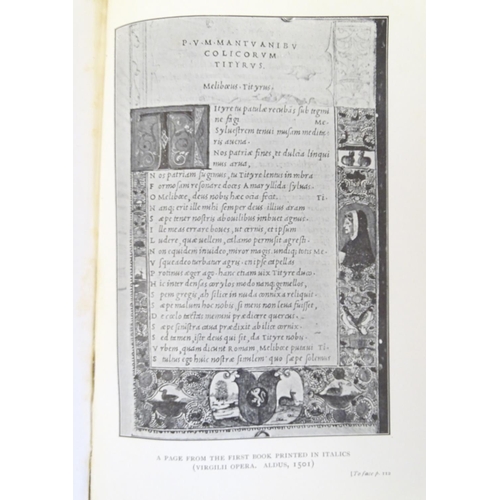 P·V·M·MANTVANI BV
COLICORVM
TITYRVS.
Meliboeus·Tityrus.
TItyre tu patulæ recubãs sub tegmi
ne fagi Me.
Syluestrem tenui musam medita
ris auena.
Nos patriæ fines, et dulcia linqui
mus arua,
Nos patriam fugimus, tu Tityre lentus in umbra
Formosam resonare doces Amaryllida syluas.
O Melibœe, deus nobis hæc ocia fecit. Ti.
Nanque erit ille mihi semper deus, illius aram
Sæpe tener nostris ab ouilibus imbuet agnus.
Ille meas errare boues, ut cernis, et ipsum
Ludere, quæ uellem, calamo permisit agresti.
Non equidem inuideo, miror magis, undiq; totis
Vsque adeo turbatur agris. en ipse capellas
Protinus æger ago. hanc etiam uix Tityre duco.
Hic inter densas corylos modo nanq; gemellos,
Spem gregis, ah silice in nuda connixa reliquit.
Sæpe malum hoc nobis, si mens non læua fuisset,
De cœlo tactas memini prædicere quercus.
Sæpe sinistra caua prædixit ab ilice cornix.
Sed tamen, iste deus qui sit, da Tityre nobis.
Vrbem, quam dicunt Romam, Melibœe putaui Ti.
Stultus ego huic nostræ similem, quo sæpe solemus
A PAGE FROM THE FIRST BOOK PRINTED IN ITALICS
(VIRGILII OPERA. ALDUS, 1501)
[To face p.